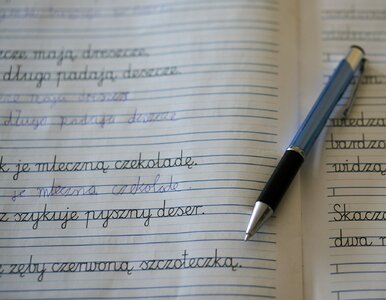 szcze mają dreszcze
długo padają deszcze.
mają dreszcze
długo padają deszcze
k je mleczną czekoladę.
je mleczną czekoladę.
z szykuje pyszny deser.
zęby czerwoną szczoteczką.
bardzo
widzą
Skacz
dwa